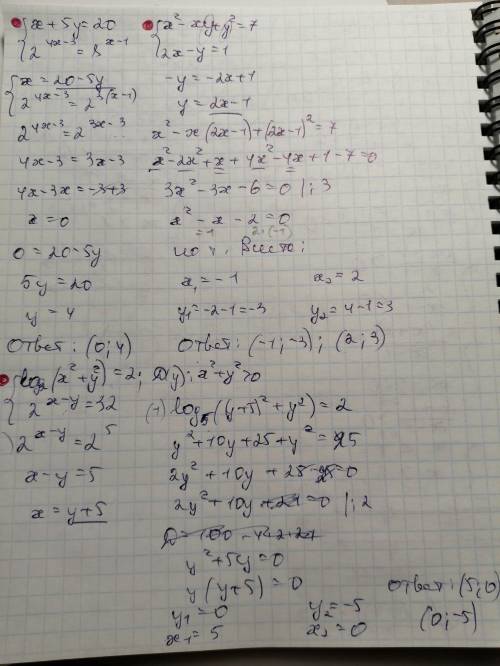 {x + 5y = 20
2^(4x-3) = 8^(x-1)
{x = 20-5y
2^(4x-3) = 2^(3(x-1))
2^(4x-3) = 2^(3x-3)
4x-3 = 3x-3
4x-3x = -3+3
x = 0
0 = 20-5y
5y = 20
y = 4
Ответ: (0; 4)
{x² - xy + y² = 7
2x - y = 1
-y = -2x+1
y = 2x-1
x² - x(2x-1) + (2x-1)² = 7
x² - 2x² + x + 4x² - 4x + 1 - 7 = 0
3x² - 3x - 6 = 0 |:3
x² - x - 2 = 0
=1 2·(-1)
по т. Виета:
x₁ = -1 x₂ = 2
y₁ = -2-1 = -3 y₂ = 4-1 = 3
Ответ: (-1; -3); (2; 3)
{log₂(x²+y²) = 2; D(y): x²+y²>0
2^(x-y) = 32
) 2^(x-y) = 2^5
x-y = 5
x = y+5
(1) log₅((y+5)² + y²) = 2
y² + 10y + 25 + y² = 25
2y² + 10y + 25 - 25 = 0
2y² + 10y + 21 = 0 |:2
D = 100 - 4·2·21
y² + 5y = 0
y(y+5) = 0
y₁ = 0 y₂ = -5
x₁ = 5 x₂ = 0
Ответ: (5; 0)
(0; -5)